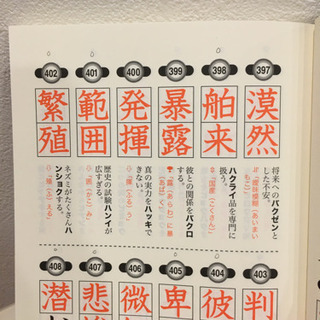 397
漠然
将来へのバクゼンと
した不安。
#「曖昧模糊(あいまい
398
舶来
ハクライ品を専門に
扱う。
#「国産(こくさん)」
399
暴露
彼との関係をバクロ
する。
400
発揮
真の実力をハッキで
きない。
401
範囲
歴史の試験ハンイが
広すぎる。
402
繁殖
ネズミがたくさんハ
ンショクする。
403
判
404
彼
405
卑
406
微
407
悲惨
408
潜